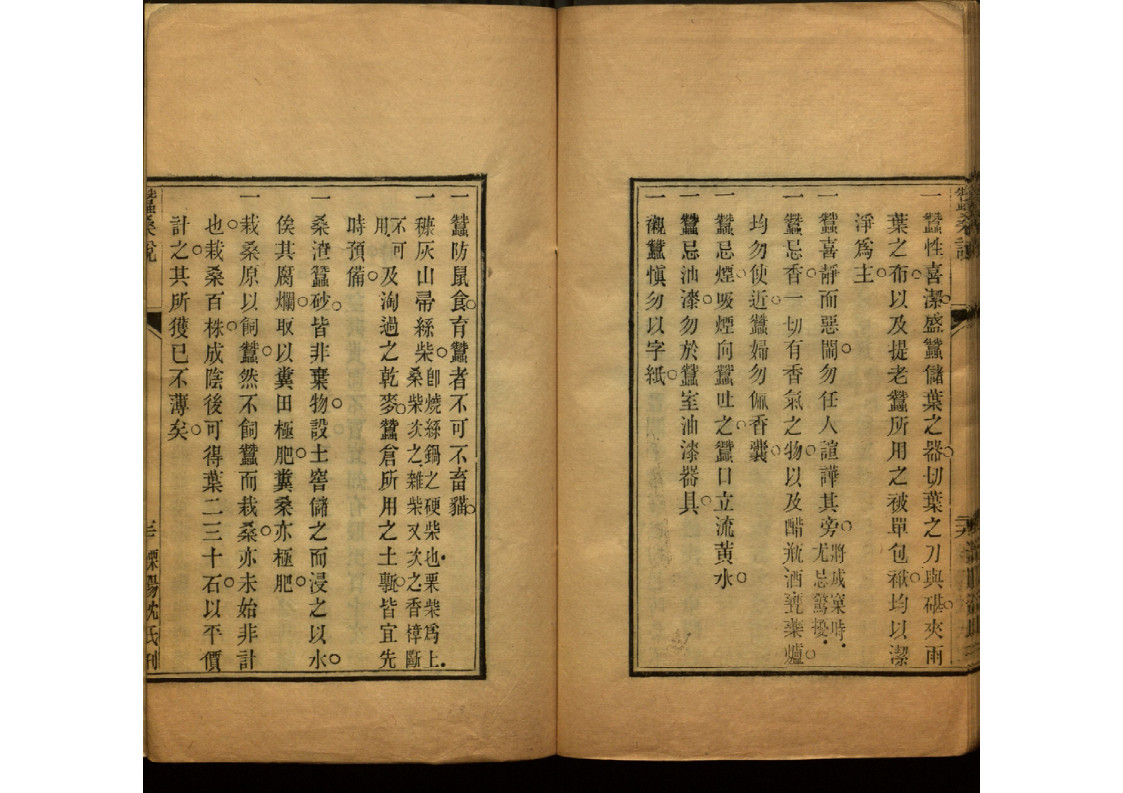 一蠶性喜潔盛蠶儲葉之器切葉之刀與碪夾雨
葉之布以及提老蠶所用之被單包袱均以潔
淨爲主
一蠶喜靜而惡鬧勿任人諠譁其旁將成窠時尤忌驚擾
一蠶忌香一切有香氣之物以及醋瓶酒甕藥爐
均勿使近蠶婦勿佩香囊
一蠶忌煙吸煙向蠶吐之蠶口立流黄水
一蠶忌油漆勿於蠶室油漆器具
一襯蠶愼勿以字紙
一蠶防鼠食育蠶者不可不畜貓
一穅灰山帚絲柴卽燒絲鍋之硬柴也栗柴爲上桑柴次之雜柴又次之香樟斷
不可用及淘過之乾麥蠶倉所用之土墼皆宜先
時預備
一桑渣蠶砂皆非棄物設土窖儲之而浸之以水
俟其腐爛取以糞田極肥糞桑亦極肥
一栽桑原以飼蠶然不飼蠶而栽桑亦未始非計
也栽桑百株成陰後可得葉二三十石以平價
計之其所獲已不薄矣
蠶桑說
溧陽沈氏刊